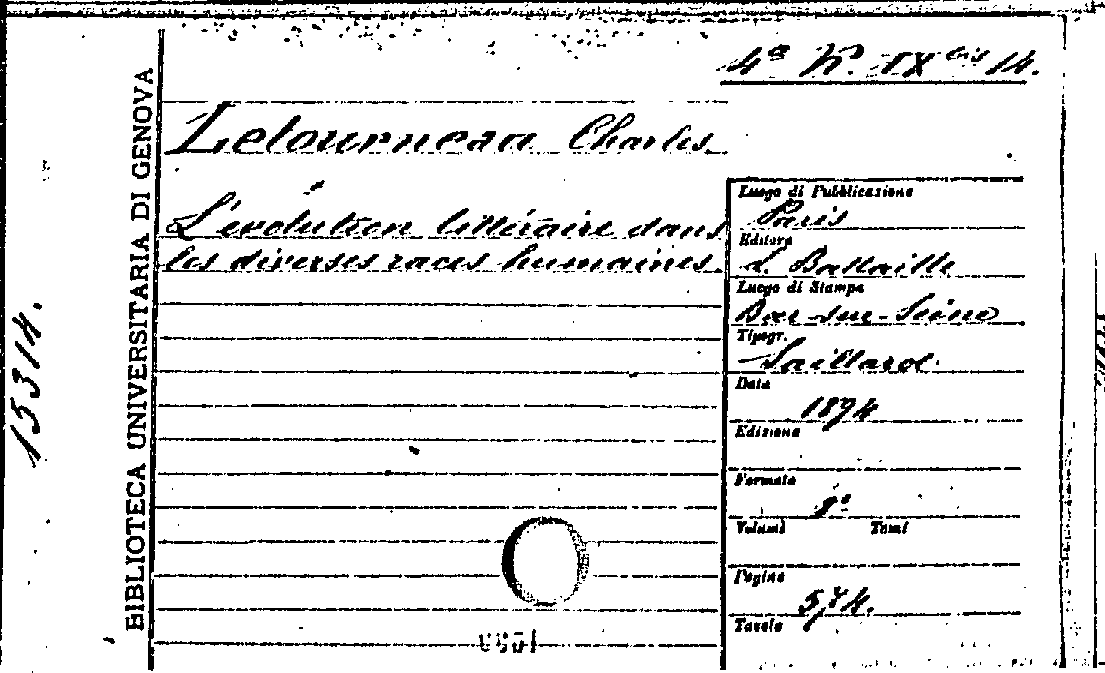 4ª K. IX bis 14.
BIBLIOTECA UNIVERSITARIA DI GENOVA
15314.
Letourneau Charles
L'évolution littéraire dans
les diverses races humaines.
Luogo di Pubblicazione
Paris
Editore
L. Battaille
Luogo di Stampa
Bar-sur-Seine
Tipogr.
Saillard.
Data
1894
Edizione
Formato
8°
Volumi Tomi
Pagine
574.
Tavole